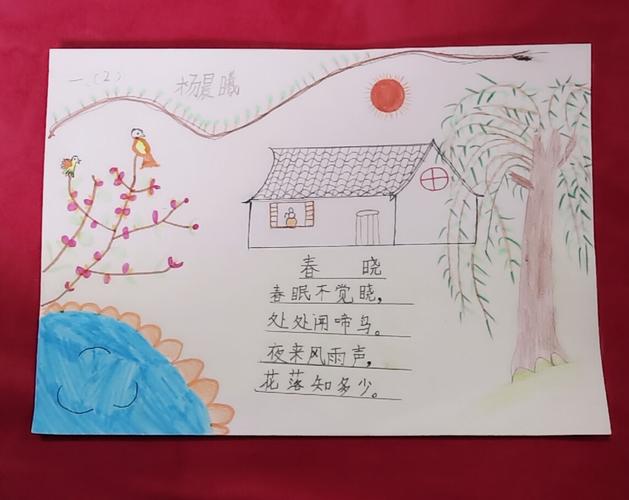 一（2）
杨晨曦
春 晓
春眠不觉晓，
处处闻啼鸟。
夜来风雨声，
花落知多少。